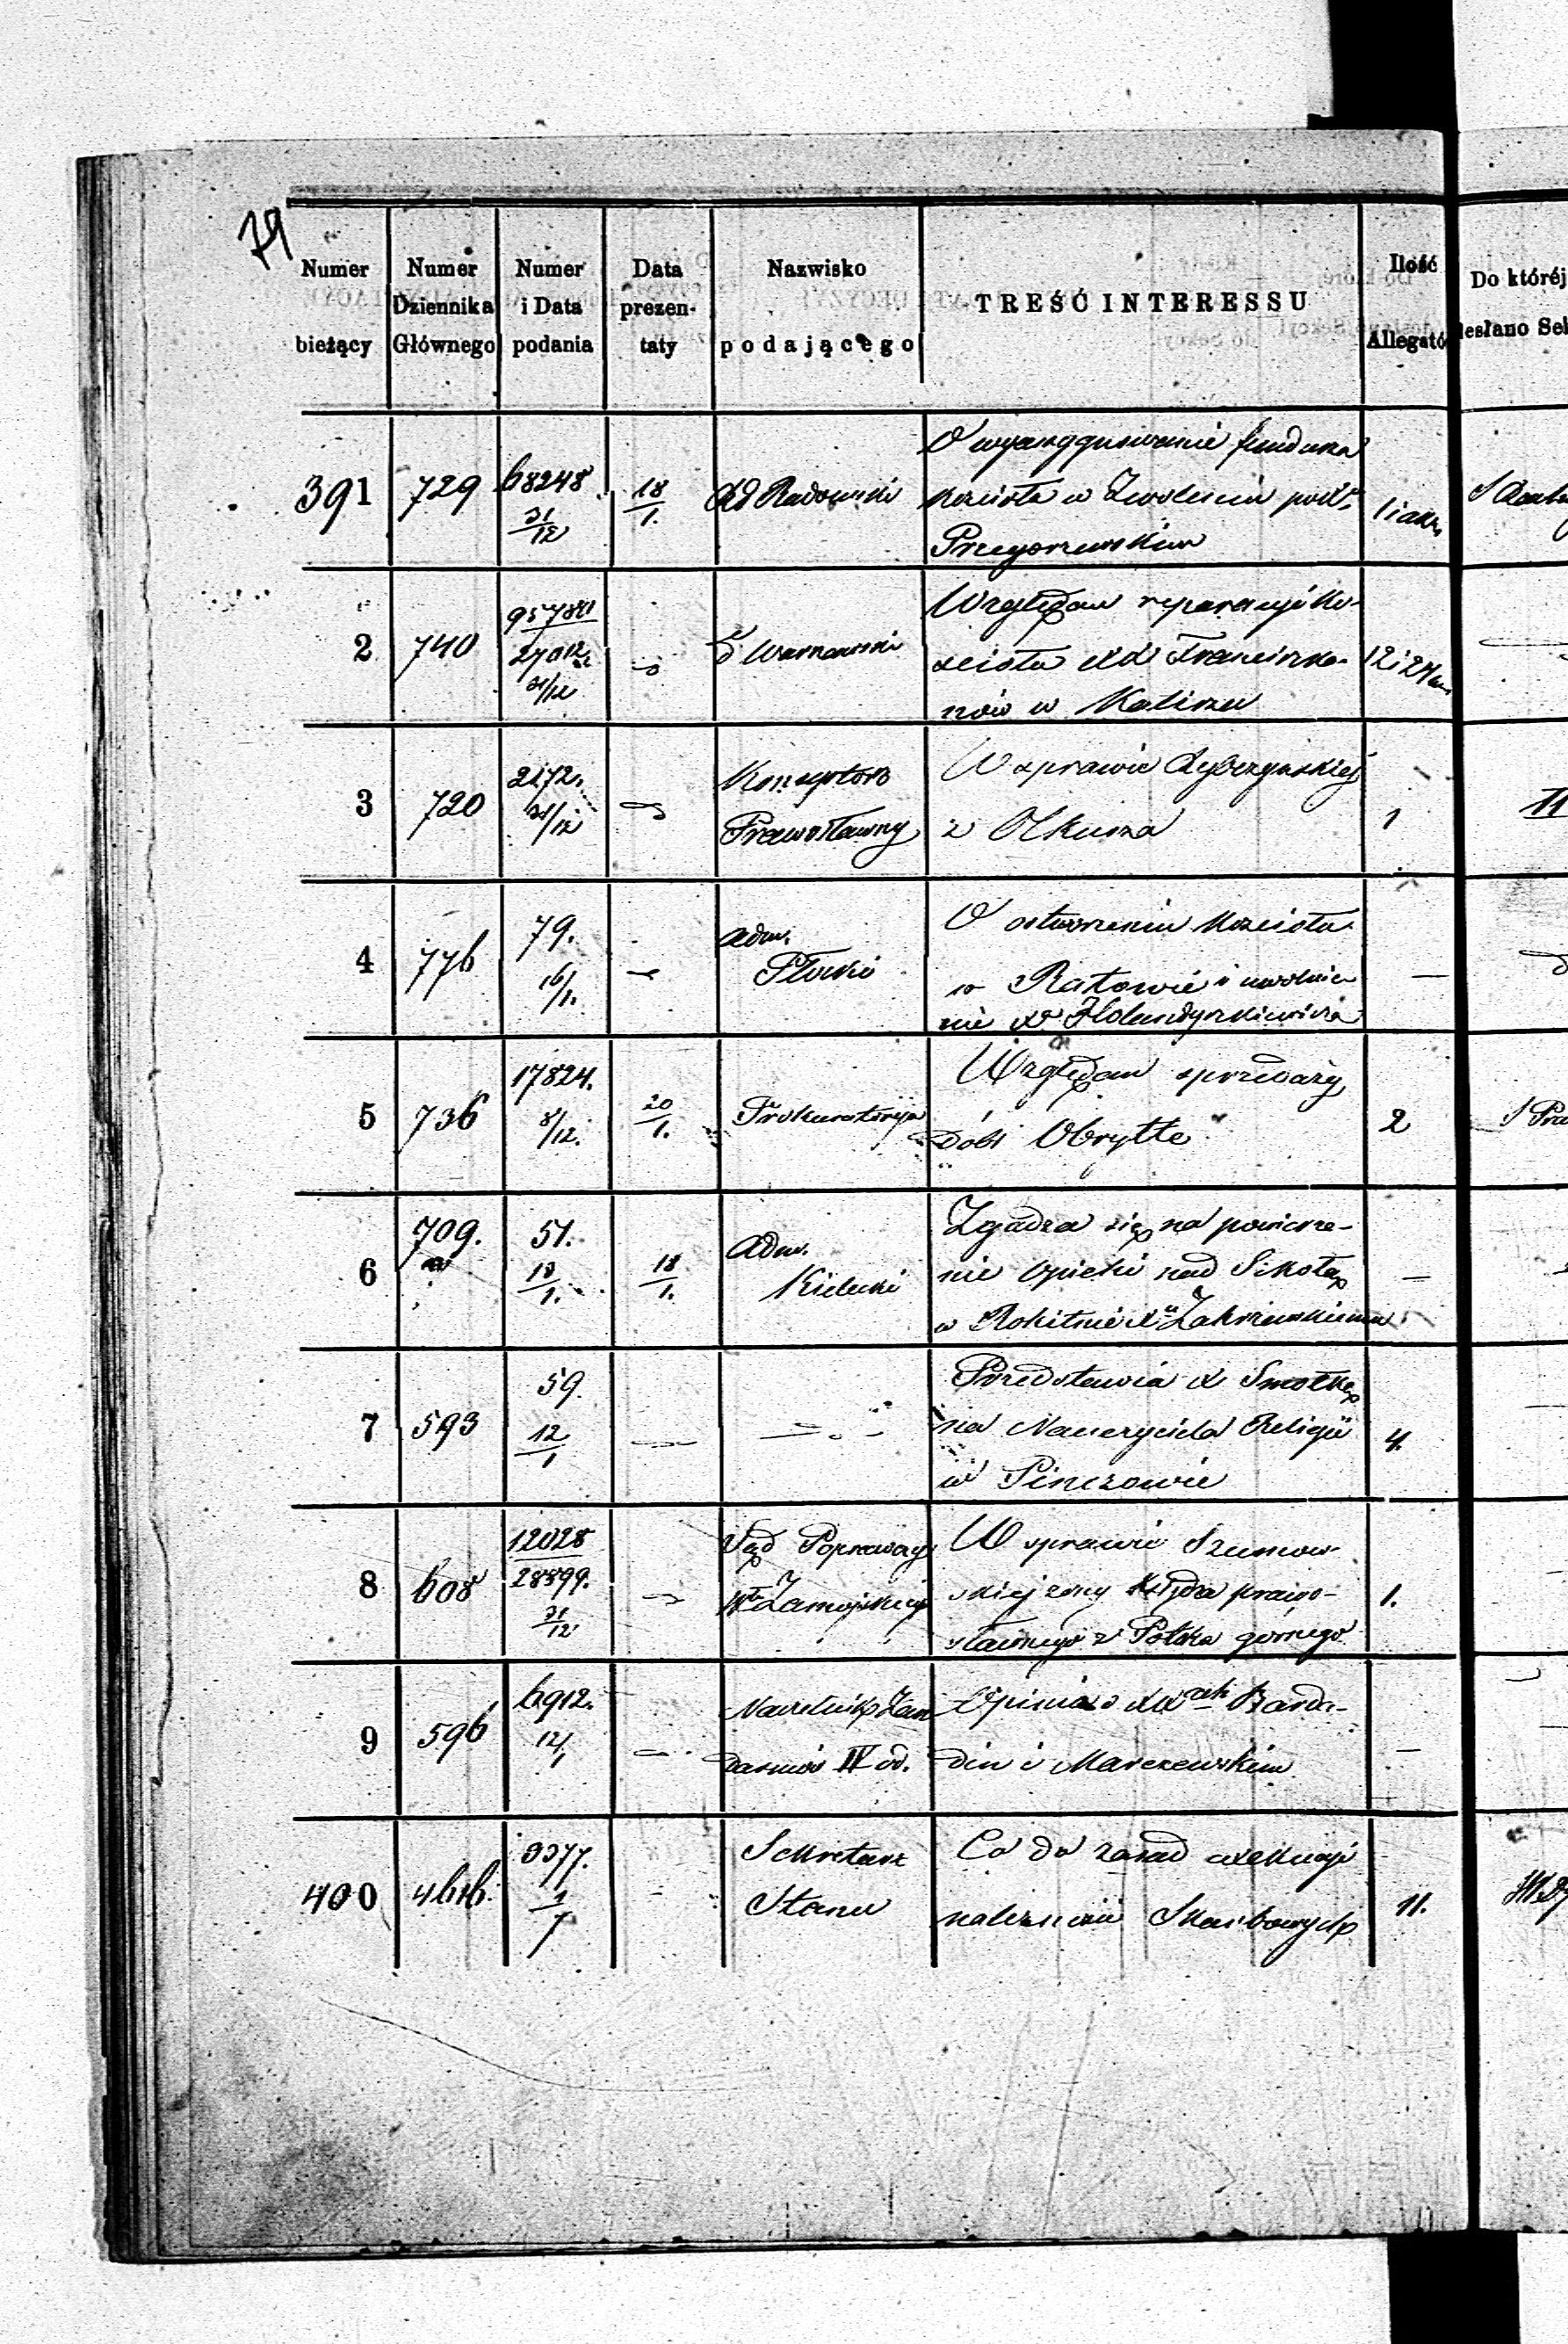 79
Numer bieżący
Numer Dziennika Głównego
Numer i Data podania
Data prezentaty
Nazwisko podającego
TREŚĆ INTERESSU
Ilość Allegató
Do którėj
esłano Sek
391 729 68248 31/12 18/1.
O wyexeqwowanie
Kościoła w Zwoleniu
2 740 31/12 Warszawski
Względem reparacyi Ko-
ścioła XX Franciszka-
nów w Kaliszu
3 720 2172. 31/12
Prawosławny
W sprawie
z Olkusza
1
4 776 79. 16/1.
Adm.
Płocki
O otworzeniu Kościoła
w Ratowie i uwolnie
nie
—
5 736 17824. 8/12. 20/1.
Prokuratorya
Względem sprzedaży
dóbr Obrytte
2
6 709. 51. 18/1. 18/1.
Adm.
Kielecki
Zgadza się na powierze-
nie Opieki nad Szkołą
w Rokitnie Xu Zakrzewskiemu
—
7 593 59. 12/1
Przedstawia X Smółkę
na Nauczyciela Religii
w Pinczowie
4.
8 608 12028 28599. 31/12
Sąd Poprawczy
W sprawie Szumow-
skiej żony Księdza prawo-
sławnego z Potoka górnego
1.
9 596 6912. 12/1
Naczelnik Żan
darmów IV od.
Opinia o XXach Banda-
din i Marczewskim
—
400 4616. 3377. 1/7
Sekretarz
Stanu
Co do zasad exekucyi
należności Skarbowych
11.